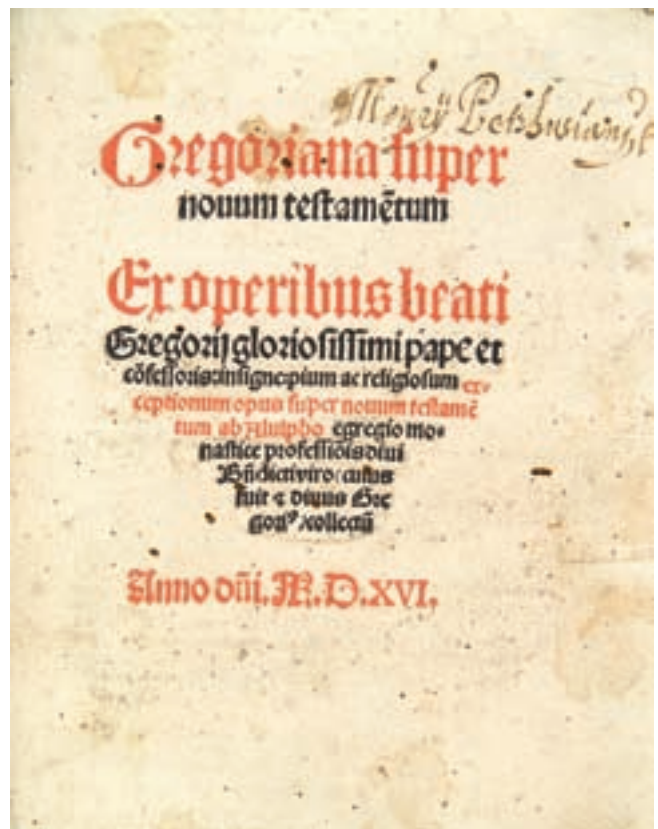 Gregoriana super
nouum testamētum
Ex operibus beati
Gregorij gloriosissimi pape et
cōfessoris: insigne: pium ac religiosum ex-
ceptionum opus super nouum testamē
tum ab Alulpho egregio mo-
nastice professiōis diui
Bn̄dicti viro: cuius
fuit ⁊ diuus Gre
gori⁹: collectū
Anno dn̄i. M.D.XVI.